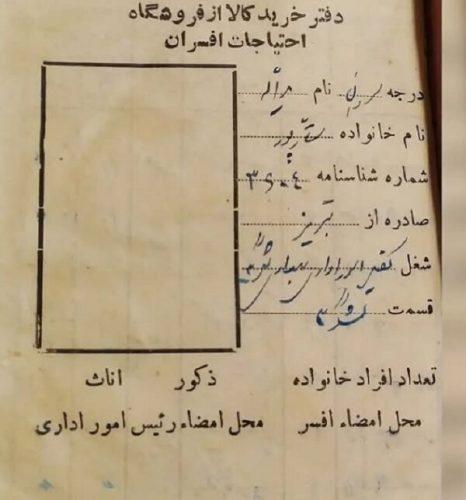 دفتر خرید کالا از فروشگاه
احتیاجات افسران
درجه سروان نام
نام خانواده
شماره شناسنامه ۳۶۰۴
صادره از تبریز
شغل
قسمت
تعداد افراد خانواده ذکور اناث
محل امضاء افسر محل امضاء رئیس امور اداری